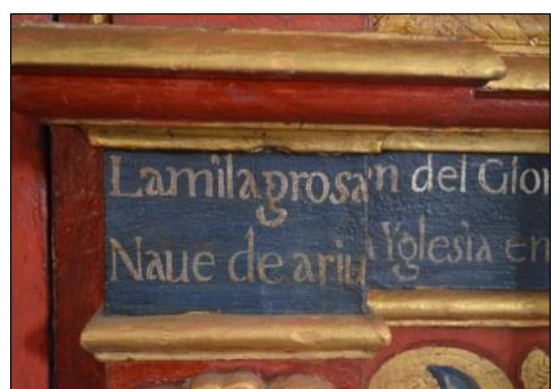 Lamilagrosa n del Glor
Naue de ariu a Yglesia en